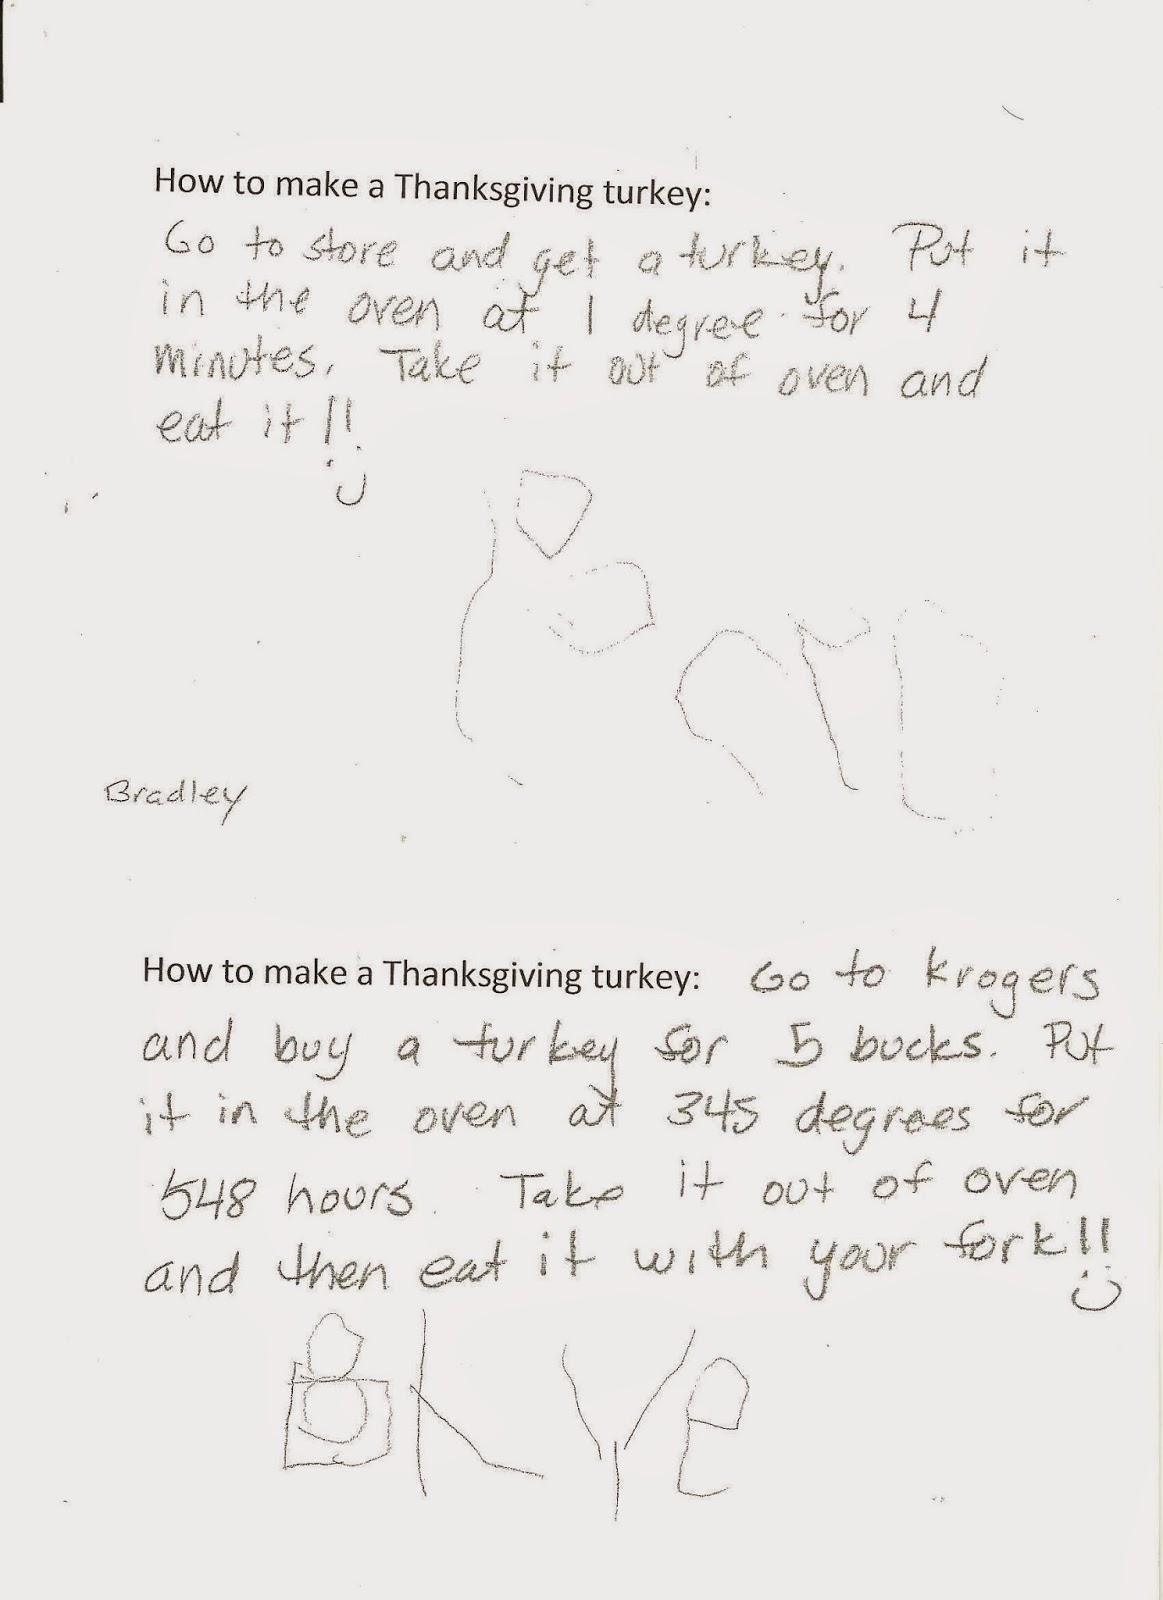 How to make a Thanksgiving turkey:
Go to store and get a turkey. Put it
in the oven at 1 degree for 4
minutes. Take it out of oven and
eat it!!
Bradley
How to make a Thanksgiving turkey: Go to krogers
and buy a turkey for 5 bucks. Put
it in the oven at 345 degrees for
548 hours. Take it out of oven
and then eat it with your fork!!